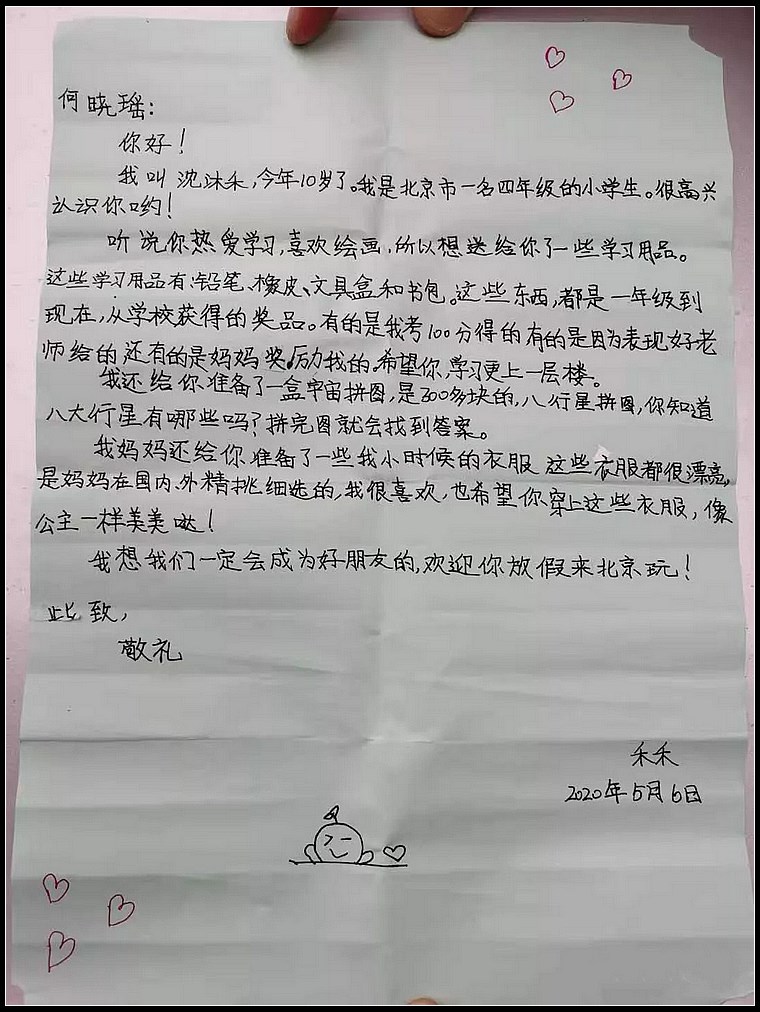 何晓瑶：
你好！
我叫沈沐禾，今年10岁了。我是北京市一名四年级的小学生。很高兴
认识你哟！
听说你热爱学习，喜欢绘画，所以想送给你了一些学习用品。
这些学习用品有：铅笔、橡皮、文具盒和书包。这些东西，都是一年级到
现在，从学校获得的奖品。有的是我考100分得的有的是因为表现好老
师给的还有的是妈妈奖励我的。希望你学习更上一层楼。
我还给你准备了一盒宇宙拼图，是300多块的，八行星拼图，你知道
八大行星有哪些吗？拼完图就会找到答案。
我妈妈还给你准备了一些我小时候的衣服 这些衣服都很漂亮，
是妈妈在国内、外精挑细选的，我很喜欢，也希望你穿上这些衣服，像
公主一样美美哒！
我想我们一定会成为好朋友的，欢迎你放假来北京玩！
此致，
敬礼
禾禾
2020年5月6日